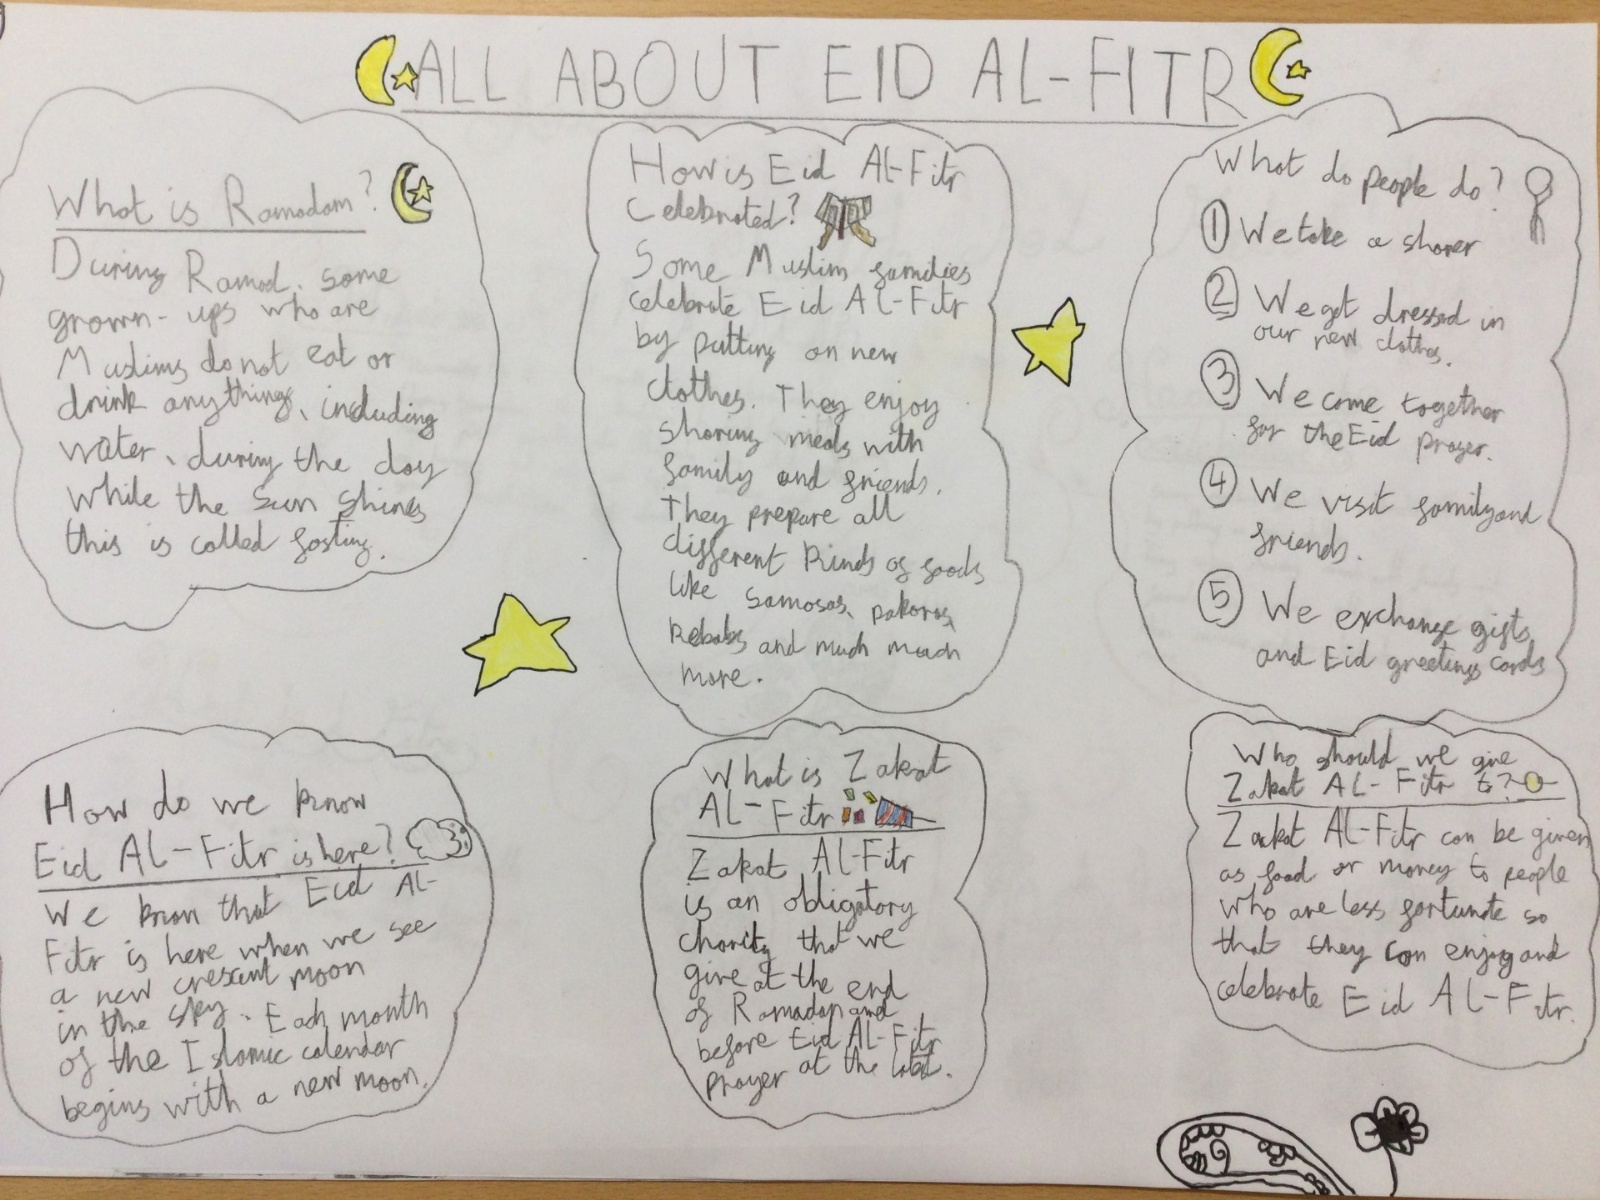 ALL ABOUT EID AL-FITR
What is Ramadam?
During Ramad. some
grown-ups who are
Muslims do not eat or
drink anything, including
water, during the day
while the sun shines
this is called fasting.
How is Eid Al-Fitr
Celebrated?
Some Muslim families
celebrate Eid AL-Fitr
by putting on new
clothes. They enjoy
sharing meals with
family and friends.
They prepare all
different kinds of foods
like samosas, pakoras,
kebabs and much much
more.
What do people do?
1 We take a shower
2 We get dressed in
our new clothes.
3 We come together
for the Eid prayer.
4 We visit family and
friends.
5 We exchange gifts
and Eid greetings cards
How do we know
Eid AL-Fitr is here?
We know that Eid AL-
Fitr is here when we see
a new crescent moon
in the sky. Each month
of the Islamic calendar
begins with a new moon.
What is Zakat
AL-Fitr
Zakat AL-Fitr
is an obligatory
charity that we
give at the end
of Ramadan and
before Eid AL-Fitr
prayer at the latest.
Who should we give
Zakat AL-Fitr to?
Zakat AL-Fitr can be given
as food or money to people
who are less fortunate so
that they can enjoy and
celebrate Eid AL-Fitr.